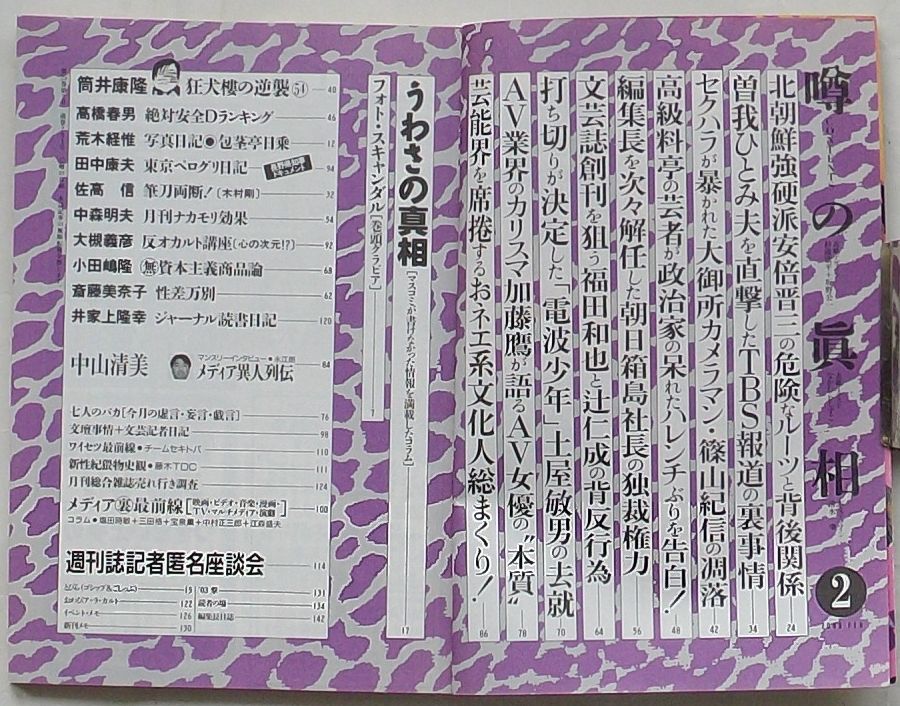 噂の眞相
2
2003 FEB
北朝鮮強硬派安倍晋三の危険なルーツと背後関係 24
曽我ひとみ夫を直撃したTBS報道の裏事情 34
セクハラが暴かれた大御所カメラマン・篠山紀信の凋落 42
高級料亭の芸者が政治家の呆れたハレンチぶりを告白! 48
編集長を次々解任した朝日箱島社長の独裁権力 56
文芸誌創刊を狙う福田和也と辻仁成の背反行為 64
打ち切りが決定した「電波少年」土屋敏男の去就 70
AV業界のカリスマ加藤鷹が語るAV女優の“本質” 78
芸能界を席捲するおネエ系文化人総まくり! 86
うわさの真相 [マスコミが書けなかった情報を満載したコラム] 17
フォト・スキャンダル [巻頭グラビア] 7
筒井康隆 狂犬樓の逆襲 54 40
高橋春男 絶対安全Dランキング 46
荒木経惟 写真日記●包茎亭日乗 12
田中康夫 東京ペログリ日記 長野県知事ドキュメント 94
佐高 信 筆刀両断!［木村剛］ 32
中森明夫 月刊ナカモリ効果 54
大槻義彦 反オカルト講座(心の次元!?) 92
小田嶋隆 無資本主義商品論 68
斎藤美奈子 性差万別 62
井家上隆幸 ジャーナル読書日記 120
中山清美 マンスリーインタビュー●永江朗
メディア異人列伝 84
七人のバカ[今月の虚言・妄言・戯言] 76
文壇事情+文芸記者日記 98
ワイセツ最前線●チームセキトバ 110
新性紀猥物史観●藤木TDC 111
月刊総合雑誌売れ行き調査 124
メディア裏最前線 [映画・ビデオ・音楽・漫画・TV・マルチメディア・演劇] 100
コラム●塩田時敏+三田格+宝泉薫+中村正三郎+江森盛夫
週刊誌記者匿名座談会 114
とびら(ゴシップ&こしっぷ) 15
'03撃 131
122 読者の場 134
イベント・メモ 126
編集長日誌 142
新刊メモ 130